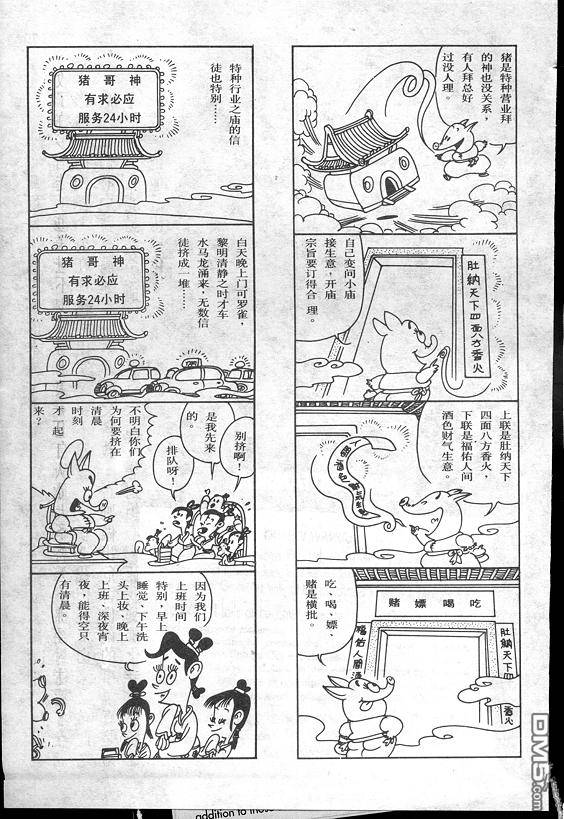 猪是特种营业拜
的神也没关系，
有人拜总好
过没人理。
自己变间小庙
接生意，开庙
宗旨要订得合理。
肚纳天下四面八方香火
上联是肚纳天下
四面八方香火，
下联是福佑人间
酒色财气生意。
吃、喝、嫖、
赌是横批。
吃喝嫖赌
肚纳天下四
香火
福佑人间酒
特种行业之庙的信
徒也特别……
猪哥神
有求必应
服务24小时
白天晚上门可罗雀，
黎明清静之时才车
水马龙涌来，无数信
徒挤成一堆……
猪哥神
有求必应
服务24小时
别挤啊！
是我先来
的。
排队呀！
不明白你们
为何要挤在
清晨
时刻
才一起
来？
因为我们
上班时间
特别，早上
睡觉、下午洗
头上妆、晚上
上班、深夜宵
夜，能得空只
有清晨。
DM5.com
addition to those